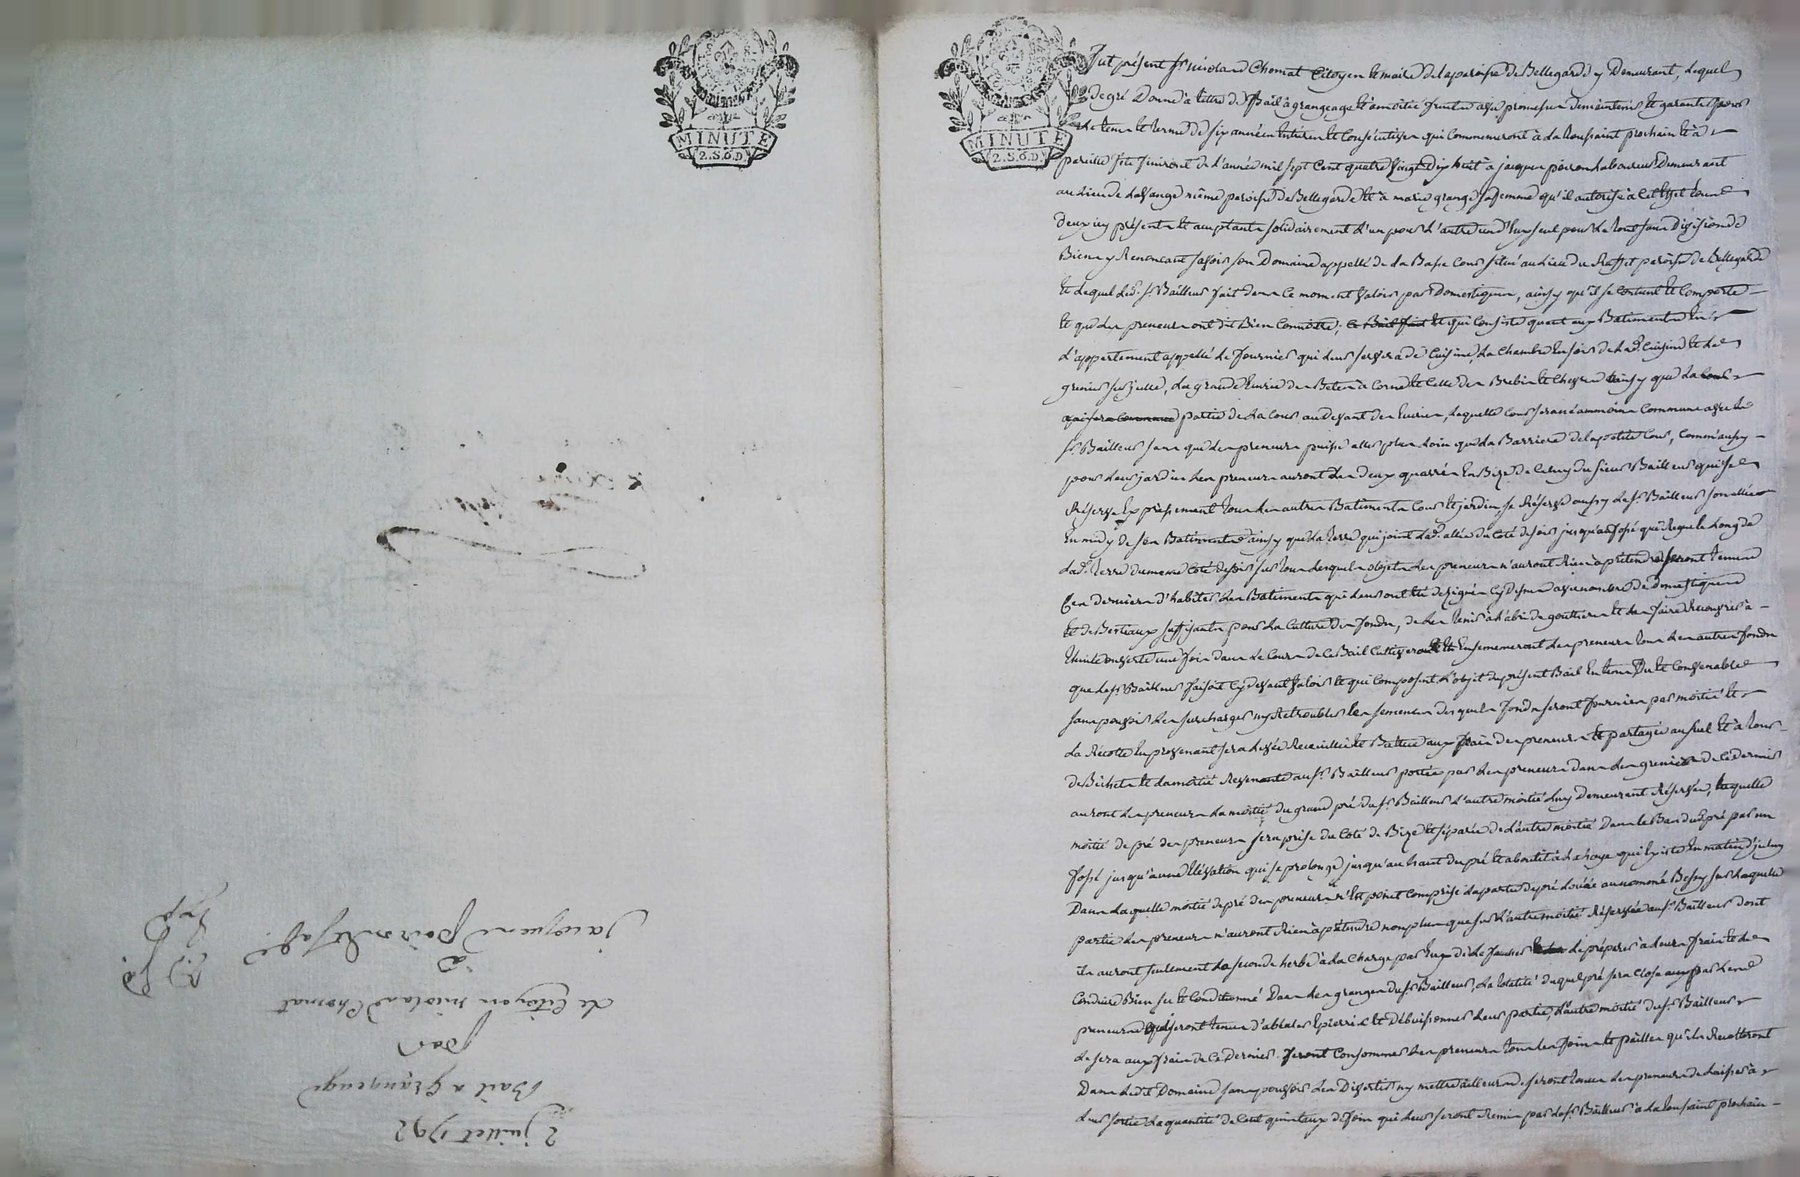 MINUTE
2.S.6.D.
2 juillet 1792
Bail a Grangeage
par
Le Citoyen nicolas Chomat
à
jacques poiron et sa fe
MINUTE
2.S.6.D.
fut présent sr nicolas Chomat Citoyen et maire de la paroisse de Bellegarde y Demeurant, Lequel
de gré Donne à titre de Bail à grangeage et à moitié fruits avec promesse de maintenir et garantir pour
Le tems et terme de six années entieres et Consécutives qui Commenceront à La toussaint prochain et à
pareille fête finiront de L'année mil sept Cent quatre vingt Dix huit à jacques poiron Laboureur Demeurant
au Lieu de même paroisse de Bellegarde et à marie grange sa femme qu'il autorise à Cet effet tous
deux icy présents et acceptants solidairement L'un pour L'autre un D'eux seul pour Le tout sans Division de
Biens y Renoncant savoir son Domaine appellé de La Basse Cour situé au Lieu du paroisse de Bellegarde
et Lequel Led. sr. Bailleur fait dans Ce moment valoir par Domestiques, ainsy qu'il se Contient et Comporte
et que Les preneurs ont dit Bien Connoitre; Ce Bail fait et qui Consiste quant aux Batiments En
L'appartement appellé Le fournier qui Leur servira de Cuisine, La Chambre En soir de Lad. Cuisine et Le
grenier sur jcelle, La grande Ecurie des Betes à Corne et Celle des Brebis et Chevres ainsy que La Cour
qui sera Commune partie de La Cour au Devant des Ecuries, Laquelle Cour sera néammoins Commune avec Le
sr. Bailleur sans que Les preneurs puisse aller plus Loin que La Barriere de La petite Cour, Comm'aussy
pour Leur jardin Les preneurs auront Les Deux quarrés En Bize de Celuy du sieur Bailleur qui se
Réserve Expressement tous Les autres Batiments Cour et jardin, se Réserve aussy Led. sr. Bailleur son allée
En midy de ses Batiments ainsy que La terre qui joint Lad. allée du Coté de soir jusqu'au fossé qui Regne Le Long de
Lad. terre du meme Coté de soir sur tous Lesquels objets Les preneurs n'auront Rien à prétendre seront tenus
Ces derniers d'habiter Les Batiments qui Leur ont été désignés Cy dessus avec nombre de domestiques
et de Bestiaux suffisants pour La Culture des fonds, de Les tenir à L'abri de gouttieres et Les faire Recouvrir à
une fois dans Le Cours de Ce Bail Cultiveront et Ensemenceront Les preneurs tous Les autres fonds
que Led. sr. Bailleur faisoit Cy devant valoir et qui Composent L'objet du présent Bail En tems Du et Convenable
sans pouvoir Les surcharger ny Retroubler Les semences desquels fonds seront fournies par moitié et
La Récolte En provenant sera Levée Recueillie et Battue aux frais des preneurs et partagée au sol et à tour
de Bichet et La moitié Revenante au sr. Bailleur portée par Les preneurs dans Les greniers de Ce dernier
auront Les preneurs La moitié du grand pré du sr. Bailleur L'autre moitié Luy Demeurant Réservée, Laquelle
moitié de pré des preneurs sera prise du Coté de Bize et séparée de L'autre moitié Dans Le Bas dud. pré par un
fossé jusqu'a une Elévation qui se prolonge jusqu'au haut du pré et aboutit à La haye qui Existe En matin d'jceluy
Dans Laquelle moitié de pré des preneurs n'Est point Comprise La partie de pré Louée au nommé Bessy sur Laquelle
partie Les preneurs n'auront Rien à prétendre non plus que sur L'autre moitié Réservée au sr. Bailleur dont
ils auront seulement La seconde herbe à La Charge par Eux de Le faucher de préparer à Leurs frais et Le
Conduire Bien sec et Conditionné Dans Les granges du sr. Bailleur, La totalité duquel pré sera Close par Les
preneurs qui seront tenus d'abbatre Epierrer et Débuissonner Leur partie, L'autre moitié du sr. Bailleur
Le sera aux frais de Ce Dernier. feront Consommer Les preneurs tous Les foins et pailles qu'ils Récolteront
Dans Ledit Domaine sans pouvoir Les Divertir ny mettre ailleurs seront tenus Les preneurs de Laisser à
Leur sortie La quantité de Cent quintaux de foin qui Leur seront Remis par Led. sr. Bailleur à La toussaint prochain